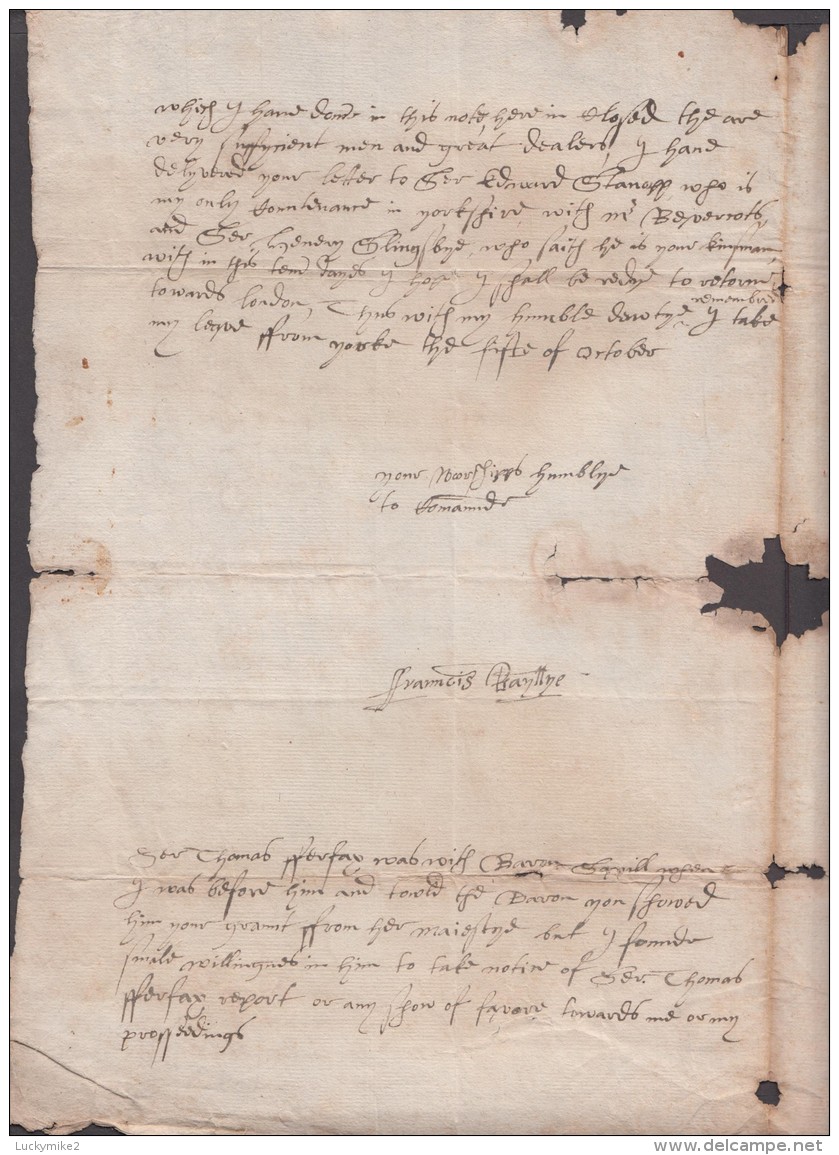 which I have done in this note here in Closed the are
very suffycient men and great dealers, I have
delyvered your letter to Ser Edward Stanopp, who is
my only Countenance in yorkshire, with mr Beveriots,
and Ser, Henery Slingsbye, who saith he is your kinsman,
with in this tenn dayes I hope I shall be redye to retorne
towards london, Thus with my humble dewtye remembred I take
my leave ffrom yorke the fifte of October
your Worshipps humblye
to Comannde
ffranncis Bayllye
Ser Thomas fferfax was with Baron Savill when
I was before him and towld the Baron you showed
him your grannt ffrom her maiestye but I founde
smale willingnes in him to take notice of Ser. Thomas
fferfax report or any show of favore towards me or my
prosseedings
Luckymike2
www.delcampe.net